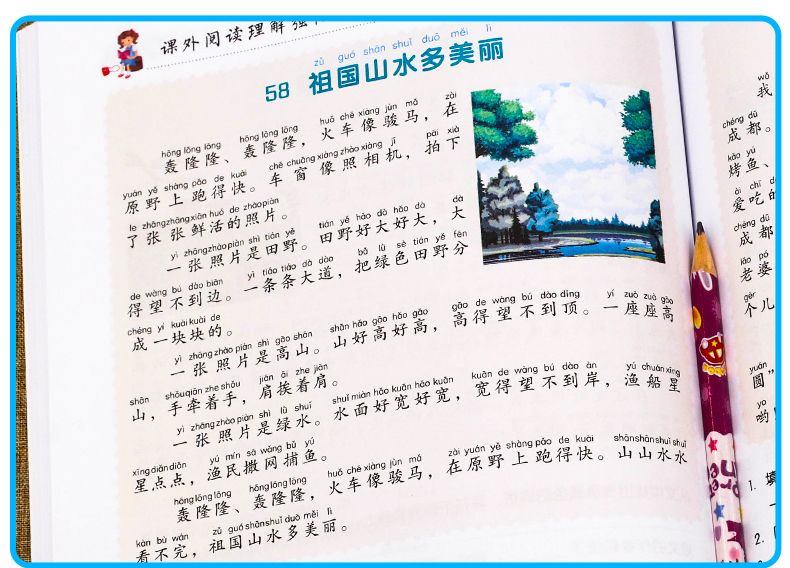 课外阅读理解强
zǔ guó shān shuǐ duō měi lì
58 祖国山水多美丽
hōng lōng lōng hōng lōng lōng huǒ chē xiàng jùn mǎ zài
轰隆隆、轰隆隆，火车像骏马，在
yuán yě shàng pǎo de kuài chē chuāng xiàng zhào xiàng jī pāi xià
原野上跑得快。车窗像照相机，拍下
le zhāng zhāng xiān huó de zhào piàn
了张张鲜活的照片。
yì zhāng zhào piàn shì tián yě tián yě hǎo dà hǎo dà dà
一张照片是田野。田野好大好大，大
de wàng bú dào biān yì tiáo tiáo dà dào bǎ lǜ sè tián yě fēn
得望不到边。一条条大道，把绿色田野分
chéng yí kuài kuài de
成一块块的。
yì zhāng zhào piàn shì gāo shān shān hǎo gāo hǎo gāo gāo de wàng bú dào dǐng yí zuò zuò gāo
一张照片是高山。山好高好高，高得望不到顶。一座座高
shān shǒu qiān zhe shǒu jiān āi zhe jiān
山，手牵着手，肩挨着肩。
yì zhāng zhào piàn shì lǜ shuǐ shuǐ miàn hǎo kuān hǎo kuān kuān de wàng bú dào àn yú chuán xīng
一张照片是绿水。水面好宽好宽，宽得望不到岸，渔船星
xīng diǎn diǎn yú mín sā wǎng bǔ yú
星点点，渔民撒网捕鱼。
hōng lōng lōng hōng lōng lōng huǒ chē xiàng jùn mǎ zài yuán yě shàng pǎo de kuài shān shān shuǐ shuǐ
轰隆隆、轰隆隆，火车像骏马，在原野上跑得快。山山水水
kàn bù wán zǔ guó shān shuǐ duō měi lì
看不完，祖国山水多美丽。
wǒ
我
chéng dū
成都。
kǎo yú
烤鱼、
ài chī
爱吃的
chéng dū
成都
lǎo pó
老婆
gèr
个儿
yuán
圆”
yo
哟！
1. 填
2.